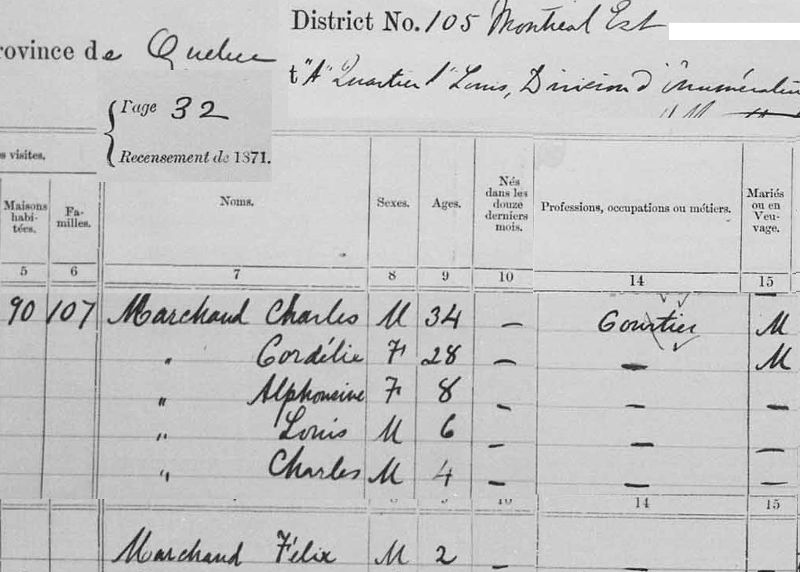 District No. 105 Montréal Est
rovince de Quebec
t "A" Quartier St Louis, Division d'énumération
Page 32
Recensement de 1871.
s visites.
Maisons habi- tées. Fa- milles. Noms. Sexes. Ages. Nés dans les douze derniers mois. Professions, occupations ou métiers. Mariés ou en Veu- vage.
5 6 7 8 9 10 14 15
90 107 Marchand Charles M 34 – Courtier M
" Cordélie F 28 – – M
" Alphonsine F 8 – – –
" Louis M 6 – – –
" Charles M 4 – – –
14 15
Marchand Félix M 2 – – –